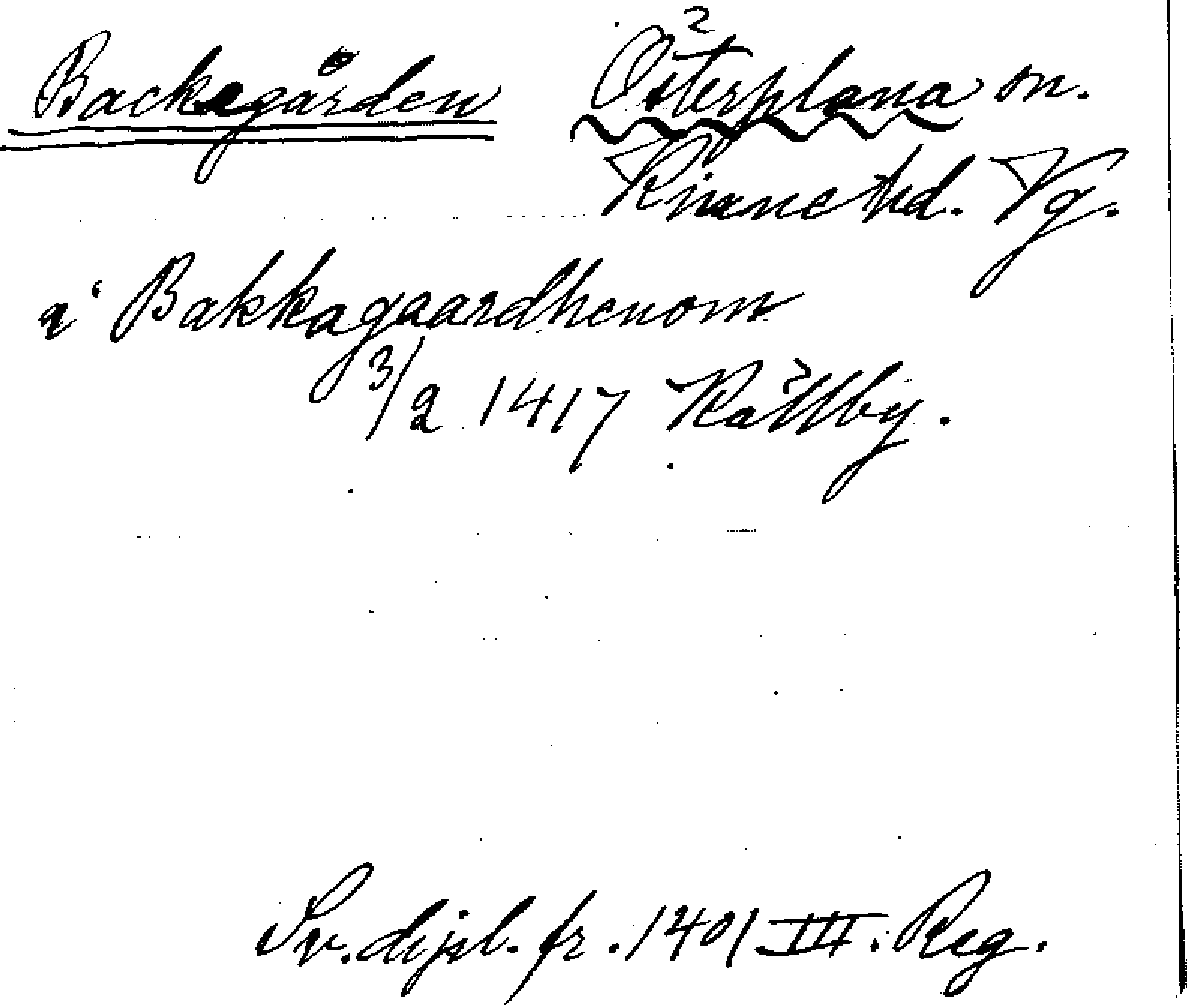 Backegården Österplana sn.
Kinne hd. Vg.
i Bakkagaardhenom
3/2 1417 Källby.
Sv. dipl. fr. 1401 III. Reg.